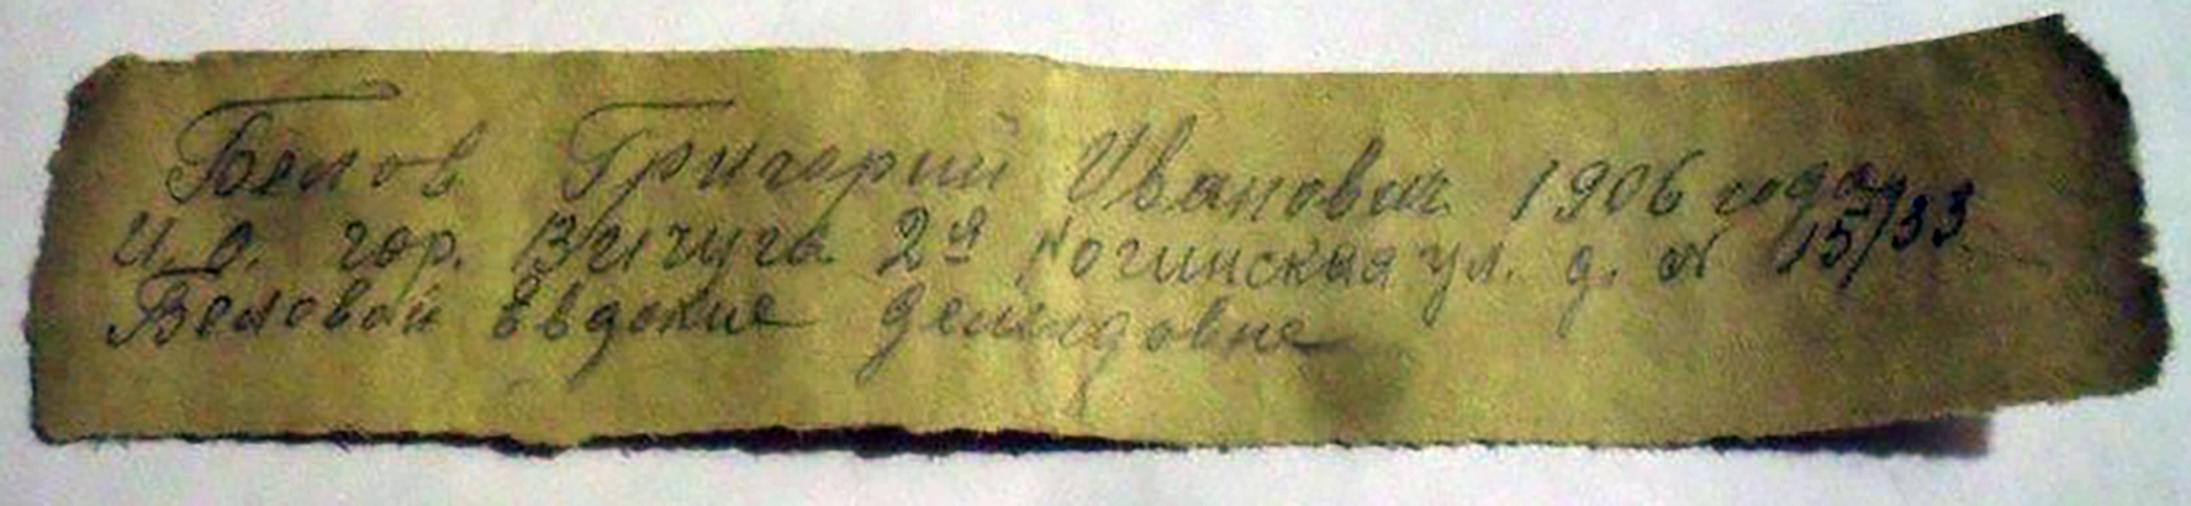 Белов Григорий Иванович 1906 года
И.О. гор. Вичуга 2я Ногинская ул. д. № 15/33
Беловой Евдокие Демидовне